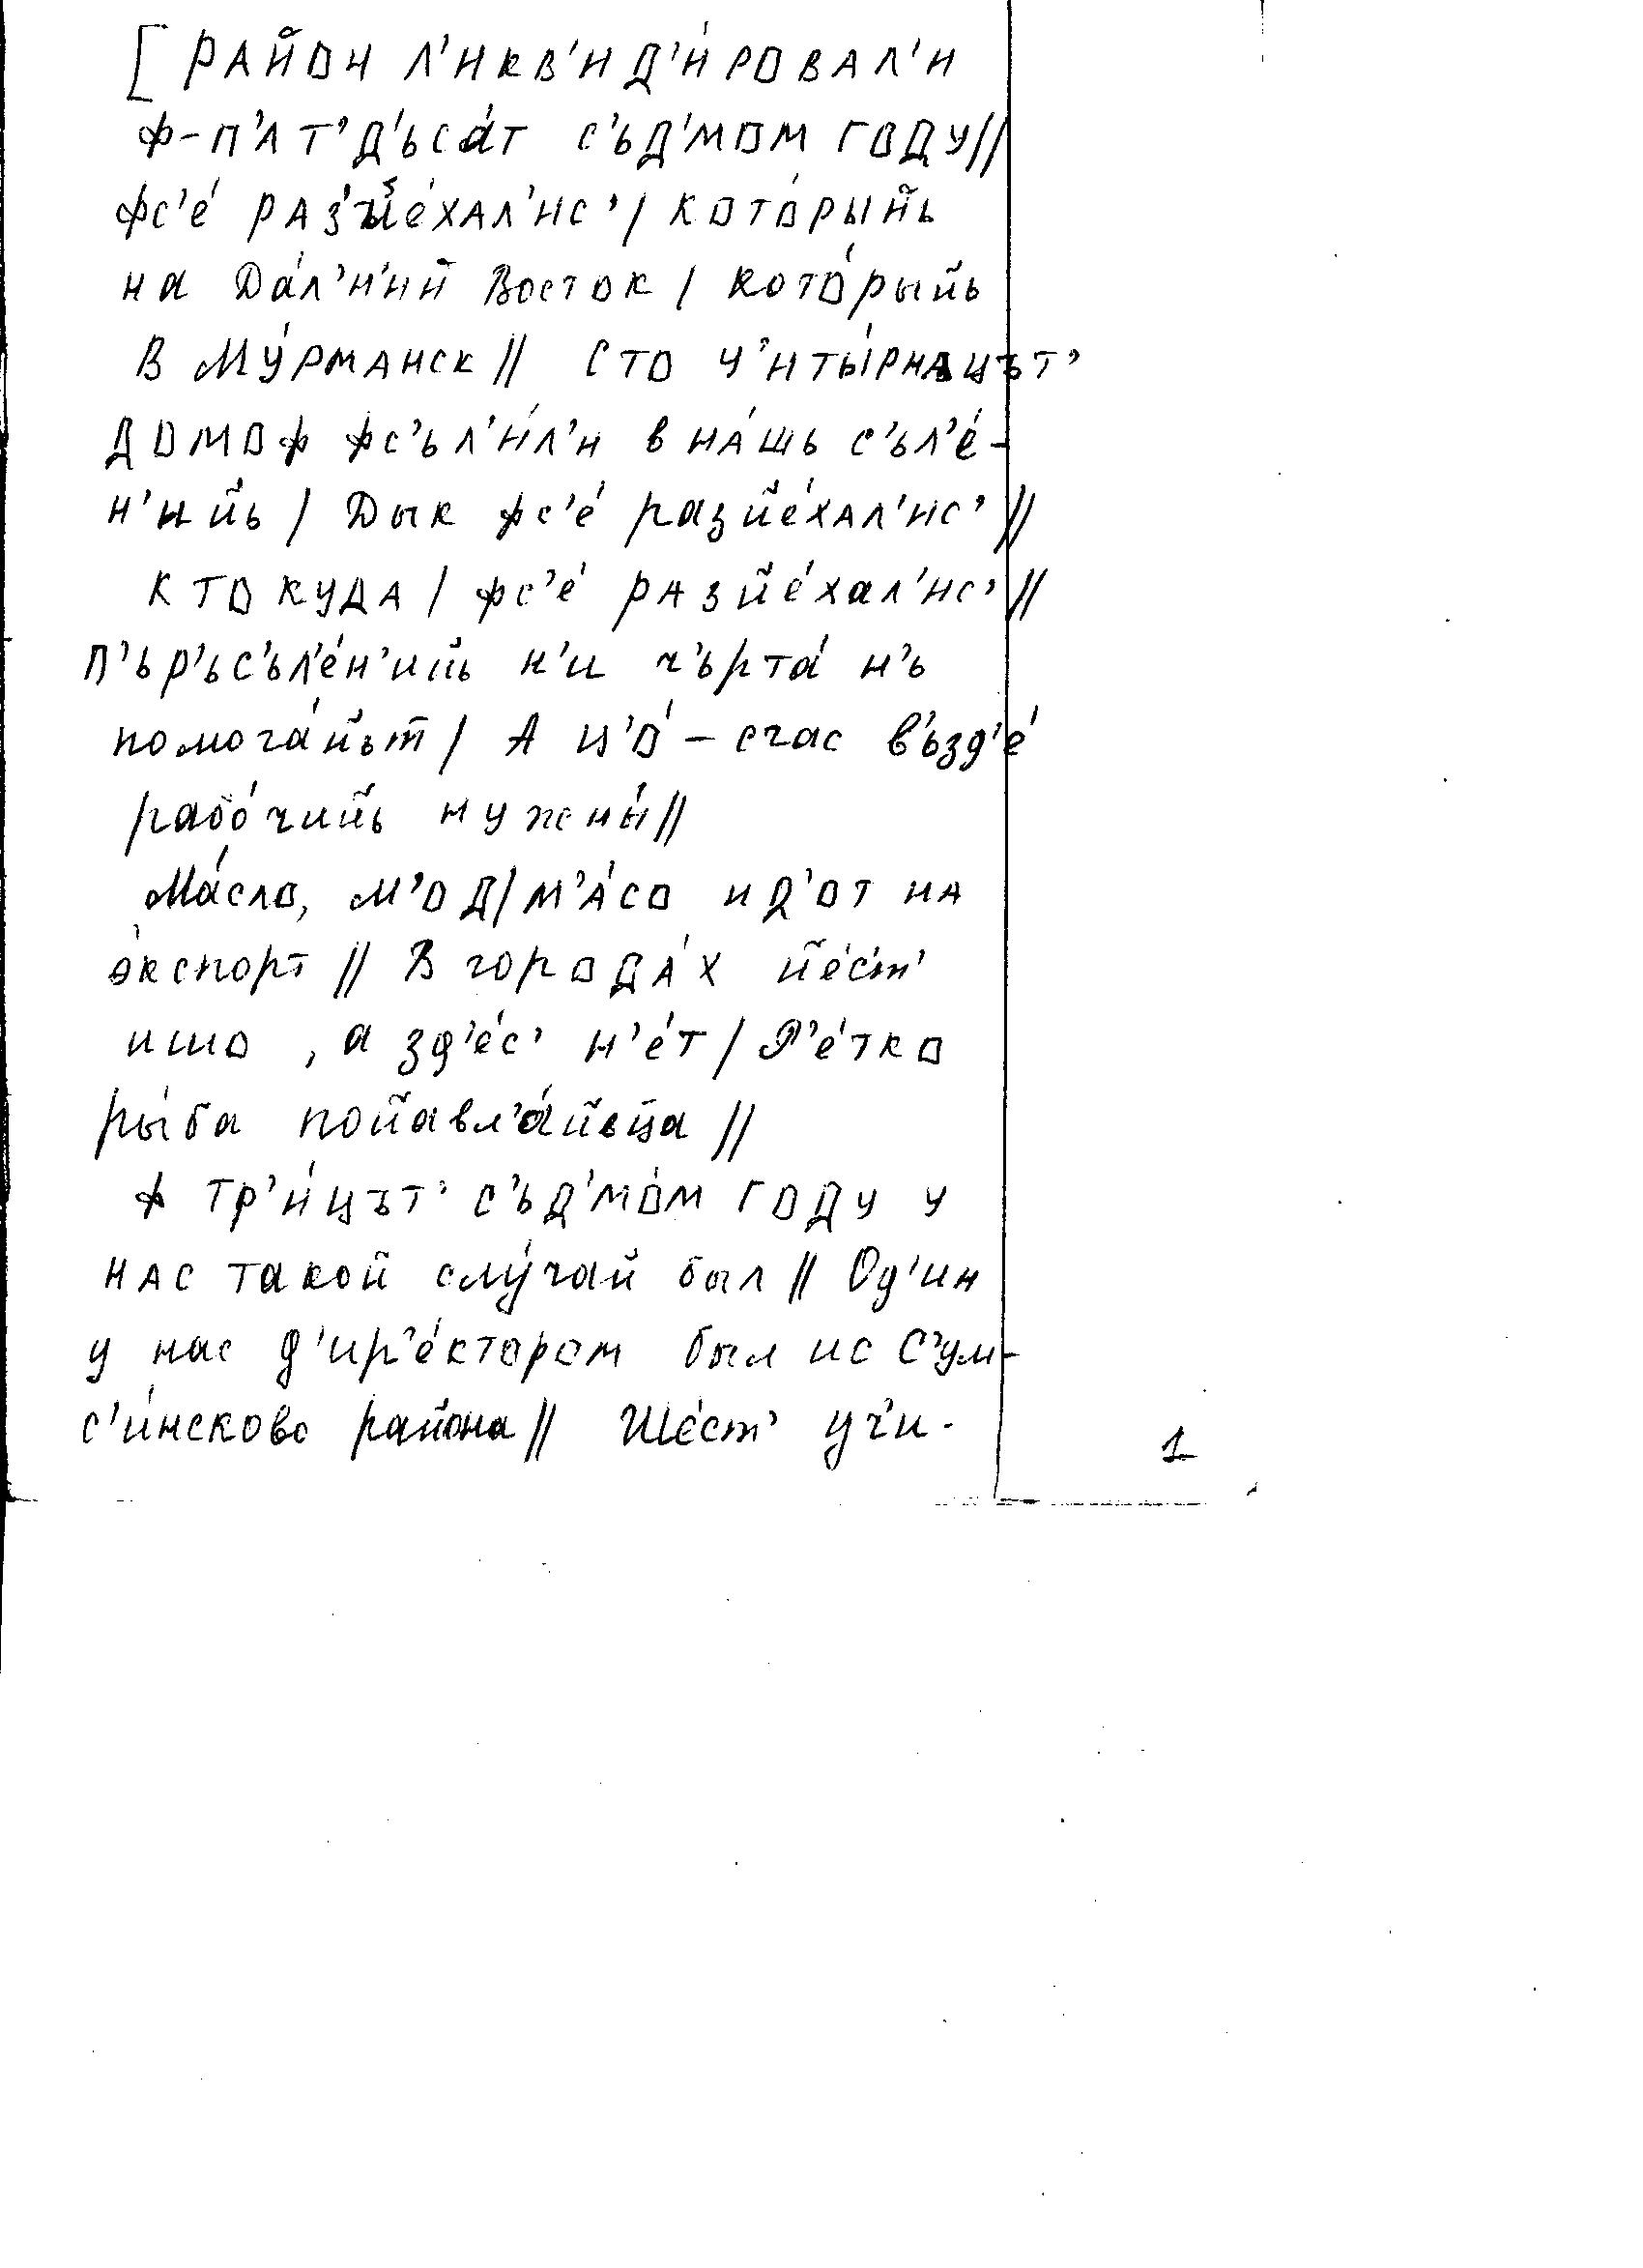 [ РАЙОН Л'ИКВ'ИД'И́РОВАЛ'И
Ф-П'АТ'Д'ЬСА́Т С'ЬД'МОМ ГОДУ//
фс'е́ РАЗ'ЪЙЕ́ХАЛ'ИС'/ КОТО́РЫЙЬ
на Да́л'н'ий Восток / кото́рыйь
В МУ́РМАНСК // СТО Ч'ИТЫ́РНАЦЪТ'
ДОМОФ ФС'ЬЛ'И́Л'И в НА́ШЬ С'ЬЛ'Е́-
Н'ИЙЬ / Дык фс'е́ разйе́хАЛ'ИС' //
КТО КУДА / фс'е́ РАЗЙЕ́хал'ИС' //
П'ЬР'ЬС'ЬЛ'Е́Н'ийь н'и ч'ьрта́ н'ь
помога́йьт / А Ц'О́ - счас в'ьзд'е́
рабо́чийь нужны́ //
Ма́сло, М'ОД/ М'А́СО ИД'ОТ НА
э́кспорт // В городА́Х йе́с'т'
ишо , а зд'е́с' н'е́т / Р'е́тко
ры́ба пойавл'а́йьца //
ф ТР'И́ЦЪТ' С'ЬД'МО́М ГОДУ У
НАС такой слу́чай был // Од'ин
у нас д'ир'е́ктором был ис С'ум-
с'и́нсково района // Ше́ст' уч'и-
1